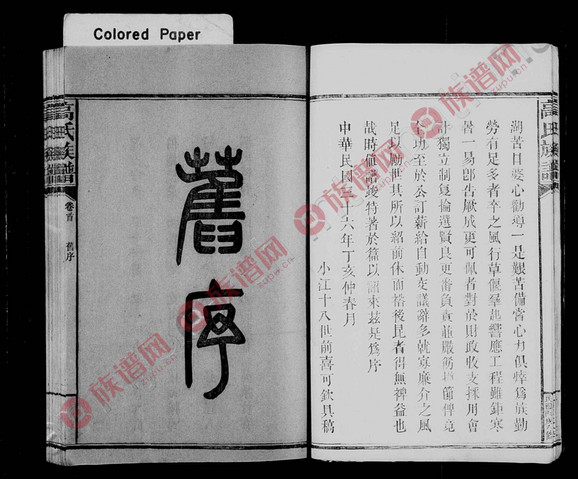 Colored Paper
湖苦口婆心勸導一是艱苦備嘗心力俱瘁爲族勤
勞有足多者卒之風行草偃羣起響應工程雖鉅寒
暑一易卽告厥成更可佩者對於財政收支採用會
計獨立制復倫選賢良更番負責並嚴節
至功至於公訂薪給自動支議辭多就寡廉介之風
足以勵世其所以紹前休而裕後昆者得無裨益也
哉時值譜竣特著於篇以詔來玆是爲序
中華民國三十六年丁亥仲春月
小江十八世前喜可欽具稿
舊序
高氏族譜
卷首
舊序
高氏族譜
族谱网
zupu.cn